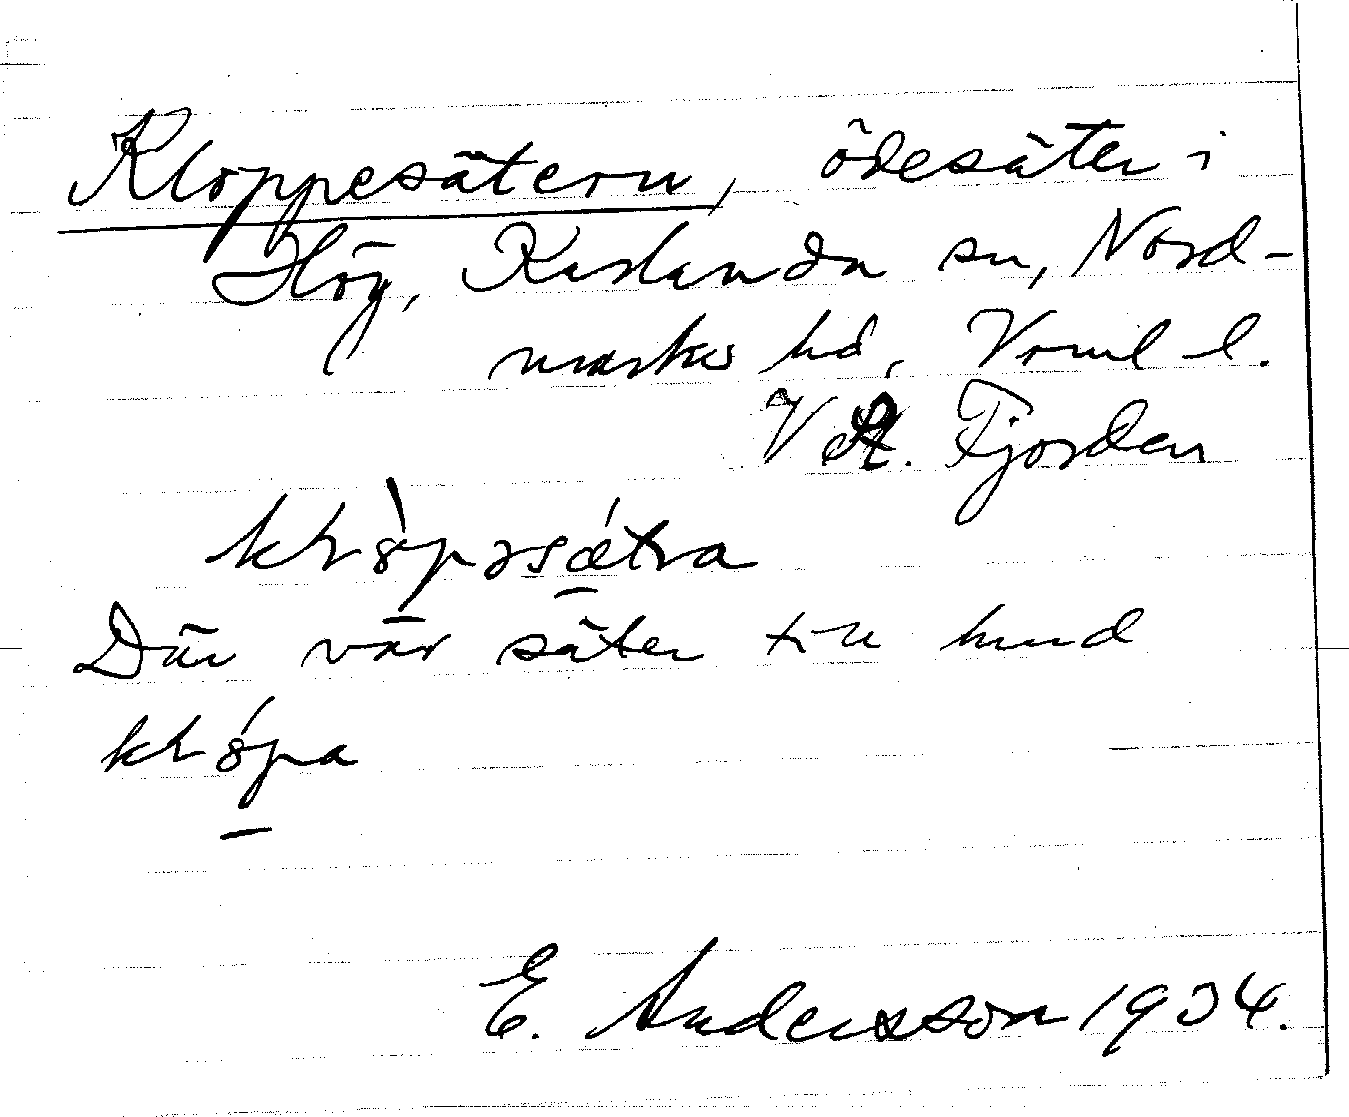 Kloppesätern, ödesäter i
Hög, Karlanda sn, Nord-
marks hd, Vrml l.
V St. Fjorden
Där var säter till hund
E. Andersson 1934.